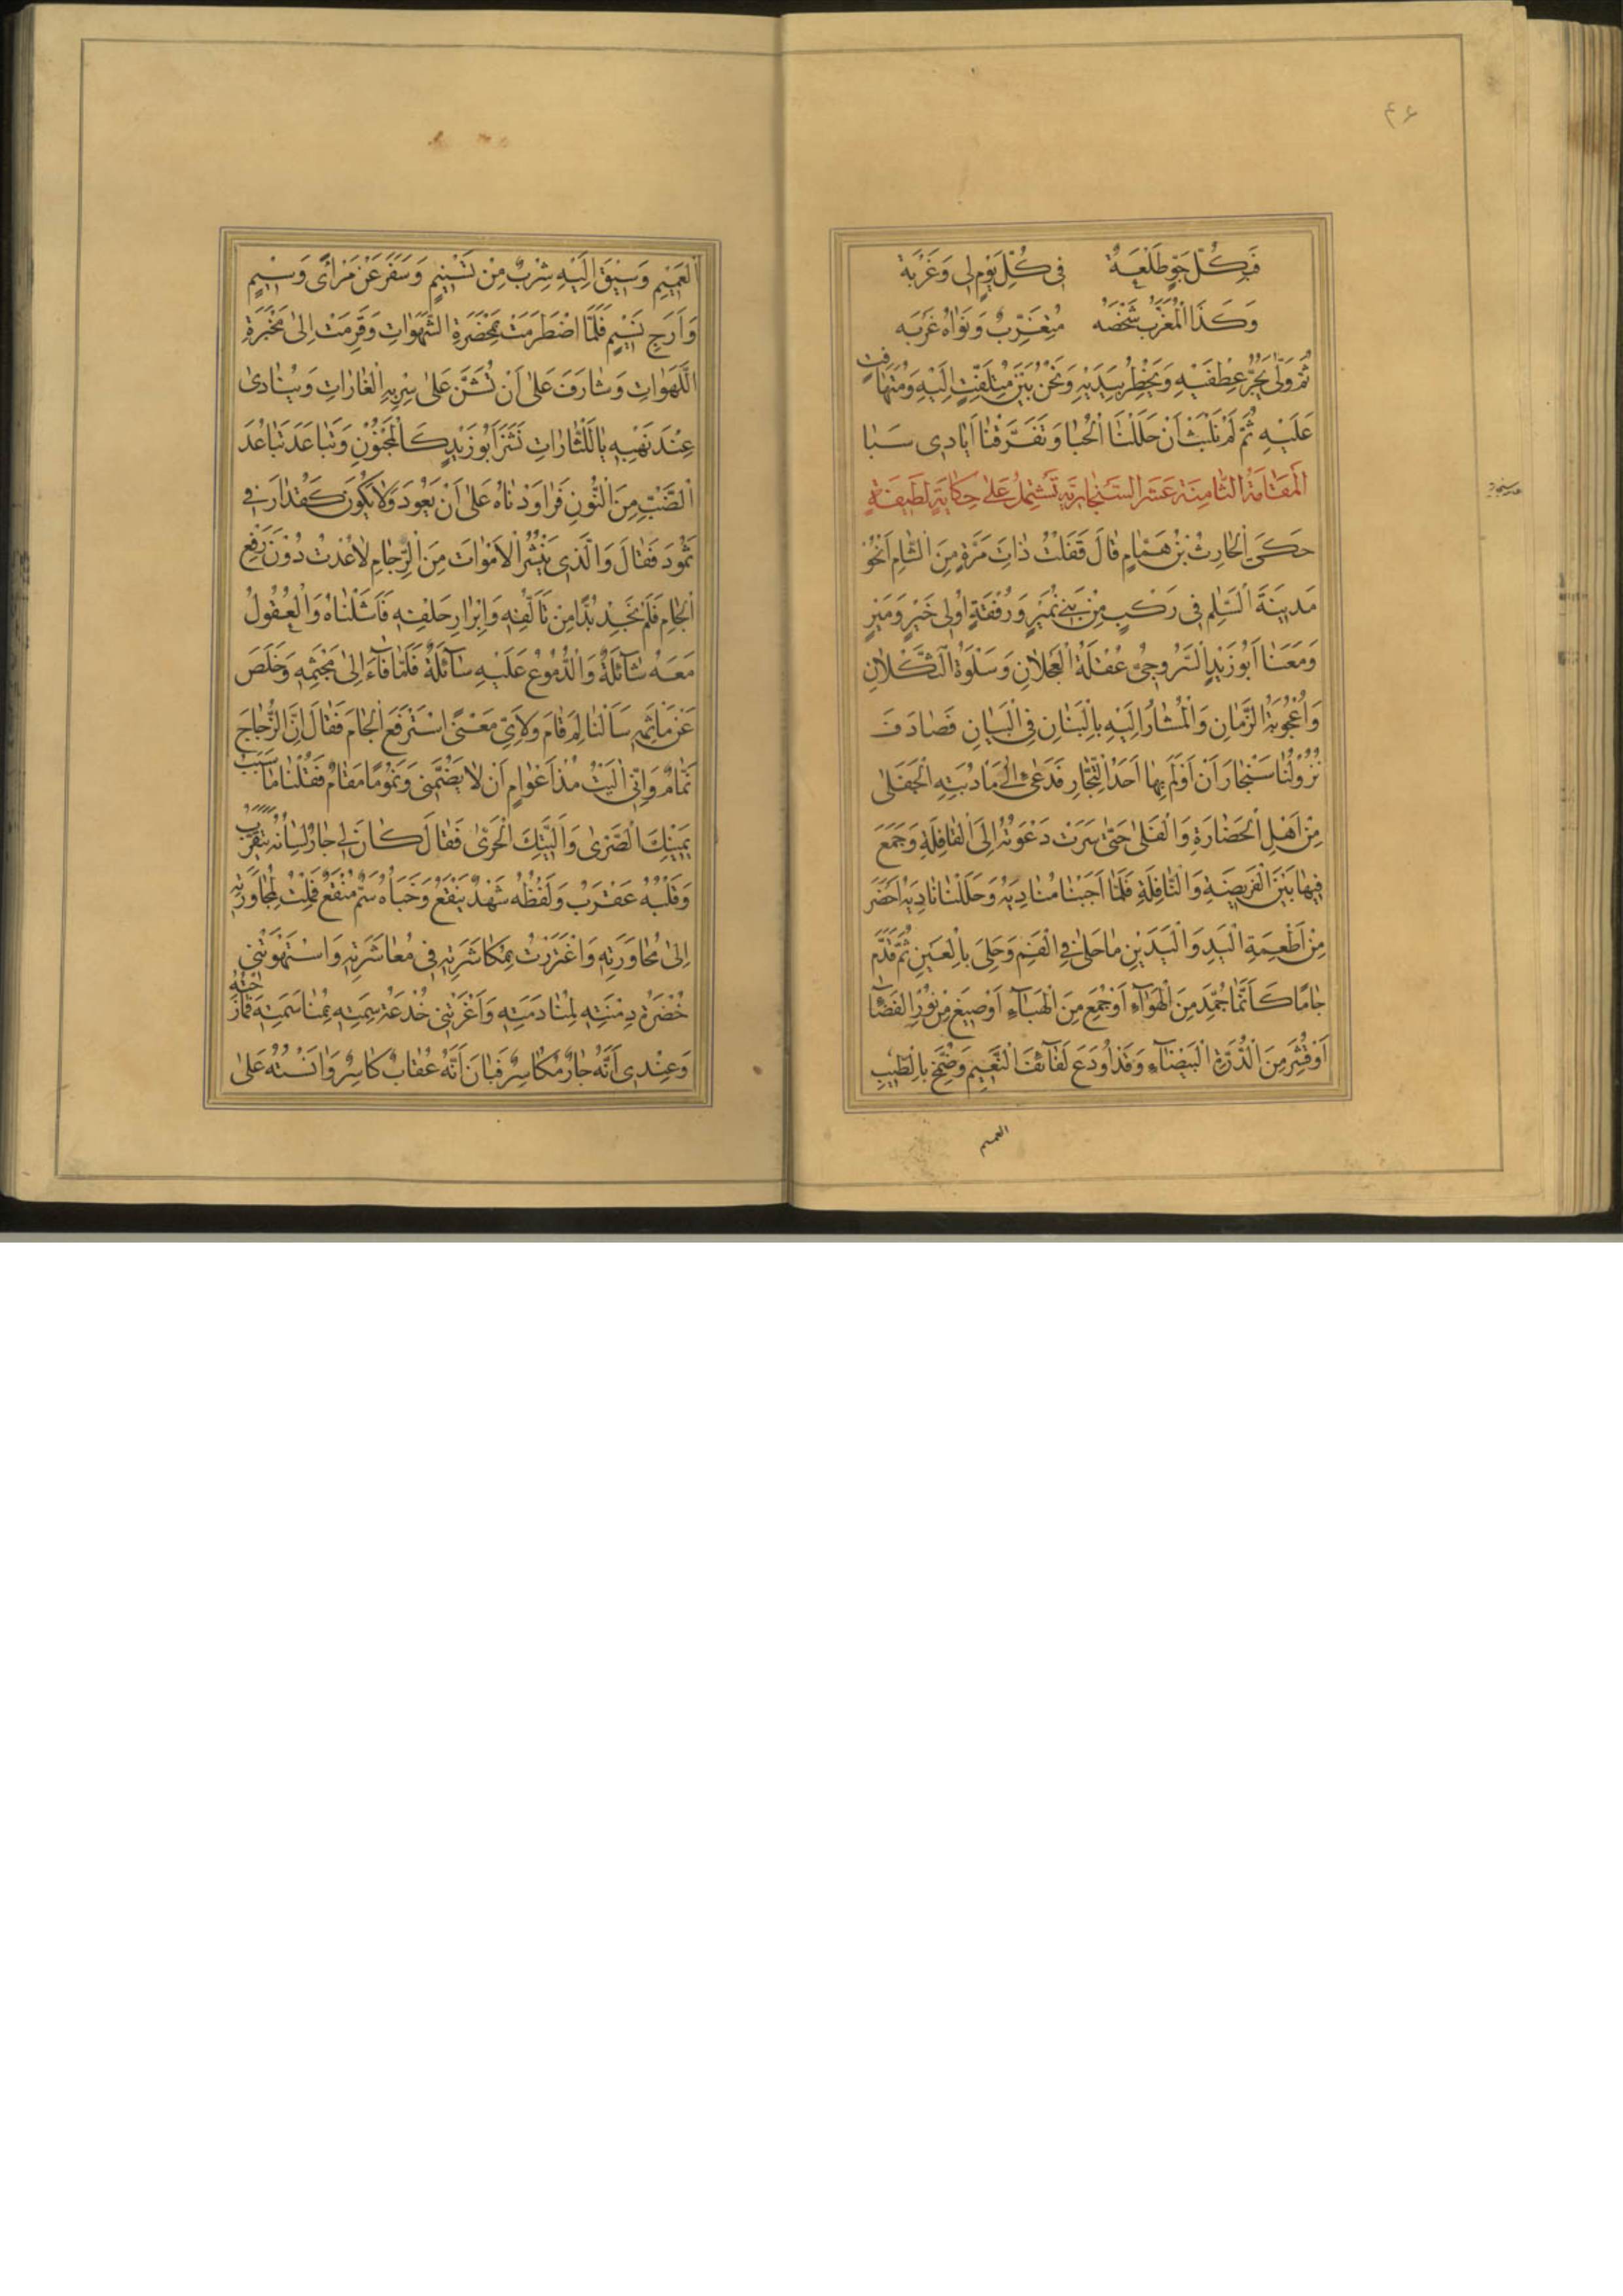 ۴۶
فَبِكُلِّ جَوٍّ طَلْعَةٌ فِى كُلِّ يَوْمٍ لِى وَغَرْبَةٌ
وَكَذَا الْمُغَرِّبُ شَخْصُهُ مُتَغَرِّبٌ وَنَوَاهُ غَرْبَه
ثُمَّ وَلّٰى يَجُرُّ عِطْفَيْهِ وَيَخْطِرُ بِيَدَيْهِ وَنَحْنُ بَيْنَ مُتَلَفِّتٍ اِلَيْهِ وَمُتَهَافِتٍ
عَلَيْهِ ثُمَّ لَمْ نَلْبَثْ اَنْ حَلَلْنَا الْحُبَا وَتَفَرَّقْنَا اَيَادِى سَبَا
اَلْمَقَامَةُ الثَّامِنَةَ عَشَرَ السَّنْجَارِيَّة تَشْتَمِلُ عَلٰى حِكَايَةٍ لَطِيفَةٍ
حَكَى الْحَارِثُ بْنُ هَمَّامٍ قَالَ قَفَلْتُ ذَاتَ مَرَّةٍ مِنَ الشَّامِ اَنْحُو
مَدِينَةَ السَّلٰمِ فِى رَكْبٍ مِنْ بَنِى نُمَيْرٍ وَرُفْقَةٍ اُولِى خَيْرٍ وَمَيْرٍ
وَمَعَنَا اَبُو زَيْدٍ السَّرُوجِىُّ عُقْلَةُ الْعَجْلَانِ وَسَلْوَةُ الثَّكْلَانِ
وَاُعْجُوبَةُ الزَّمَانِ وَالْمُشَارُ اِلَيْهِ بِالْبَنَانِ فِى الْبَيَانِ فَصَادَفَ
نُزُولُنَا سَنْجَارَ اَنْ اَوْلَمَ بِهَا اَحَدُ التُّجَّارِ فَدَعٰى اِلٰى مَادُبَتِهِ الْجَفَلٰى
مِنْ اَهْلِ الْحَضَارَةِ وَالْفَلٰى حَتّٰى سَرَتْ دَعْوَتُهُ اِلَى الْقَافِلَةِ وَجَمَعَ
فِيهَا بَيْنَ الْفَرِيضَةِ وَالنَّافِلَةِ فَلَمَّا اَجَبْنَا مُنَادِيَهُ وَحَلَلْنَا نَادِيَهُ اَحْضَرَ
مِنْ اَطْعِمَةِ الْيَدِ وَالْيَدَيْنِ مَا حَلٰى فِى الْفَمِ وَحَلِىَ بِالْعَيْنِ ثُمَّ قَدَّمَ
جَامًا كَاَنَّمَا جُمِّدَ مِنَ الْهَوَآءِ اَوْ جُمِعَ مِنَ الْهَبَآءِ اَوْ صِيغَ مِنْ نُورِ الْفَضَآءِ
اَوْ قُشِّرَ مِنَ الدُّرَّةِ الْبَيْضَآءِ وَقَدْ اُودِعَ لَفَآئِفَ النَّعِيمِ وَضُمِّخَ بِالطِّيبِ
العميم
الْعَمِيمِ وَسِيقَ اِلَيْهِ شِرْبٌ مِنْ تَسْنِيمٍ وَسَفَرَ عَنْ مَرْاًى وَسِيمٍ
وَاَرَجِ نَسِيمٍ فَلَمَّا اضْطَرَمَتْ بِمَحْضَرَةِ الشَّهَوَاتِ وَقَرِمَتْ اِلٰى مَخْبَرَةِ
اللَّهَوَاتِ وَشَارَفَ عَلٰى اَنْ تُشَنَّ عَلٰى سِرْبِهِ الْغَارَاتِ وَيُنَادٰى
عِنْدَ نَهْبِهِ يَا لَلثَّارَاتِ نَشَزَ اَبُو زَيْدٍ كَالْمَجْنُونِ وَتَبَاعَدَ تَبَاعُدَ
الضَّبِّ مِنَ النُّونِ فَرَاوَدْنَاهُ عَلٰى اَنْ يَعُودَ وَلَا يَكُونَ كَقُدَارَ فِى
ثَمُودَ فَقَالَ وَالَّذِى يَنْشُرُ الْاَمْوَاتَ مِنَ الرِّجَامِ لَا عُدْتُ دُونَ رَفْعِ
الْجَامِ فَلَمْ نَجِدْ بُدًّا مِنْ تَاَلُّفِهِ وَاِبْرَارِ حَلْفِهِ فَاَشَلْنَاهُ وَالْعُقُولُ
مَعَهُ شَآئِلَةٌ وَالدُّمُوعُ عَلَيْهِ سَآئِلَةٌ فَلَمَّا فَآءَ اِلٰى مَجْثِمِهِ وَخَلَصَ
عَنْ مَاْثَمِهِ سَاَلْنَا لِمَ قَامَ وَلِاَىِّ مَعْنًى اسْتَرْفَعَ الْجَامَ فَقَالَ اِنَّ الزُّجَاجَ
نَمَّامٌ وَاِنِّى اٰلَيْتُ مُذْ اَعْوَامٍ اَنْ لَا يَضُمَّنِى وَنَمُومًا مَقَامٌ فَقُلْنَا مَا سَبَبُ
يَمِينِكَ الصَّرّٰى وَاَلِيَّتِكَ الْحَرّٰى فَقَالَ كَانَ لِى جَارٌ لِسَانُهُ يَتَقَرَّبُ
وَقَلْبُهُ عَقْرَبٌ وَلَفْظُهُ شَهْدٌ يَنْقَعُ وَخَبَاُهُ سَمٌّ مُنْقَعٌ فَمِلْتُ لِمُجَاوَرَتِهِ
اِلٰى مُحَاوَرَتِهِ وَاغْتَرَرْتُ بِمُكَاشَرَتِهِ فِى مُعَاشَرَتِهِ وَاسْتَهْوَتْنِى
خُضْرَةُ دِمْنَتِهِ لِمُنَادَمَتِهِ وَاَغْرَتْنِى خُدْعَةُ سِمَتِهِ بِمُنَاسَمَتِهِ فَمَازَجْتُهُ
وَعِنْدِى اَنَّهُ جَارٌ مُكَاسِرٌ فَبَانَ اَنَّهُ عُقَابٌ كَاسِرٌ وَاٰنَسْتُهُ عَلٰى